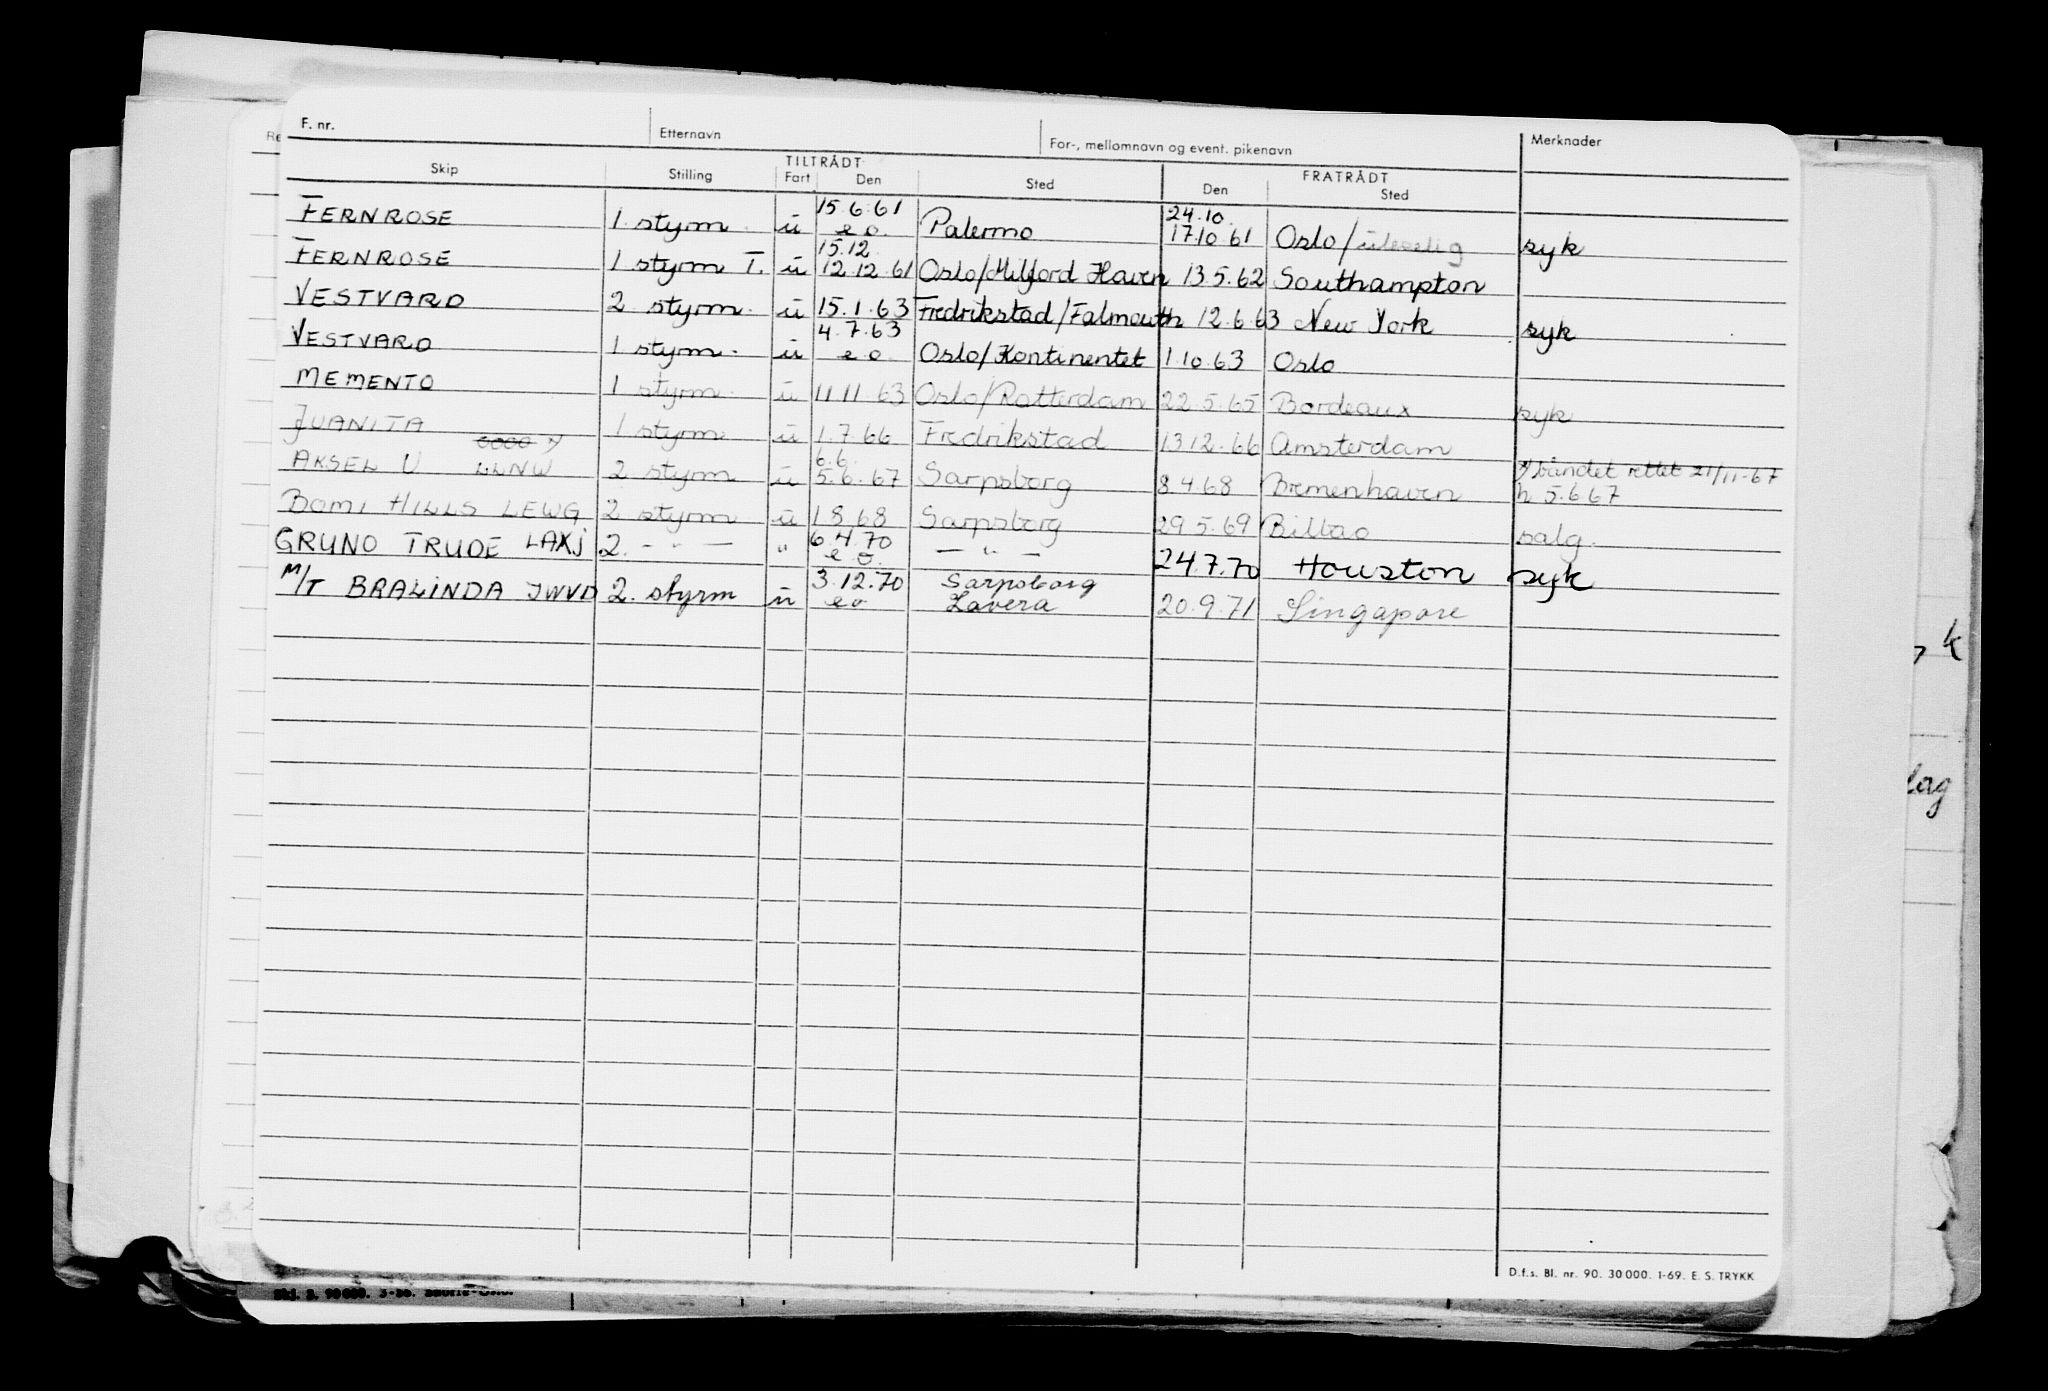 F. nr. Etternavn For-, mellomnavn og event. pikenavn Merknader
TILTRÅDT FRATRÅDT
Skip Stilling Fart Den Sted Den Sted
15.6.61 24.10.
FERNROSE 1. styrm. u e.o. Palermo 17.10.61 Oslo / syk
15.12.
FERNROSE 1 styrm T. u 12.12.61 Oslo/Milford Haven 13.5.62 Southampton
VESTVARD 2 styrm. u 15.1.63 Fredrikstad/Falmouth 12.6.63 New York syk
4.7.63
VESTVARD 1 styrm. u e.o. Oslo/Kontinentet 1.10.63 Oslo
MEMENTO 1 styrm. u 11.11.63 Oslo/Rotterdam 22.5.65 Bordeaux syk
JUANITA 1 styrm u 1.7.66 Fredrikstad 13.12.66 Amsterdam
6.6.
AKSEL U LLNW 2 styrm u 5.6.67 Sarpsborg 8.4.68 Bremenhaven båndet rettet 21/11-67
h 5.6.67
BOMI HILLS LEWG 2 styrm u 1.8.68 Sarpsborg 29.5.69 Bilbao salg.
6.4.70
GRUNO TRUDE LAXJ 2. - " - " e o. - " - 24.7.70 Houston syk
3.12.70 Sarpsborg
M/T BRALINDA JWVD 2. styrm u e o Lavera 20.9.71 Singapore
k
lag
D.f.s. Bl. nr. 90. 30 000. 1-69. E. S. TRYKK